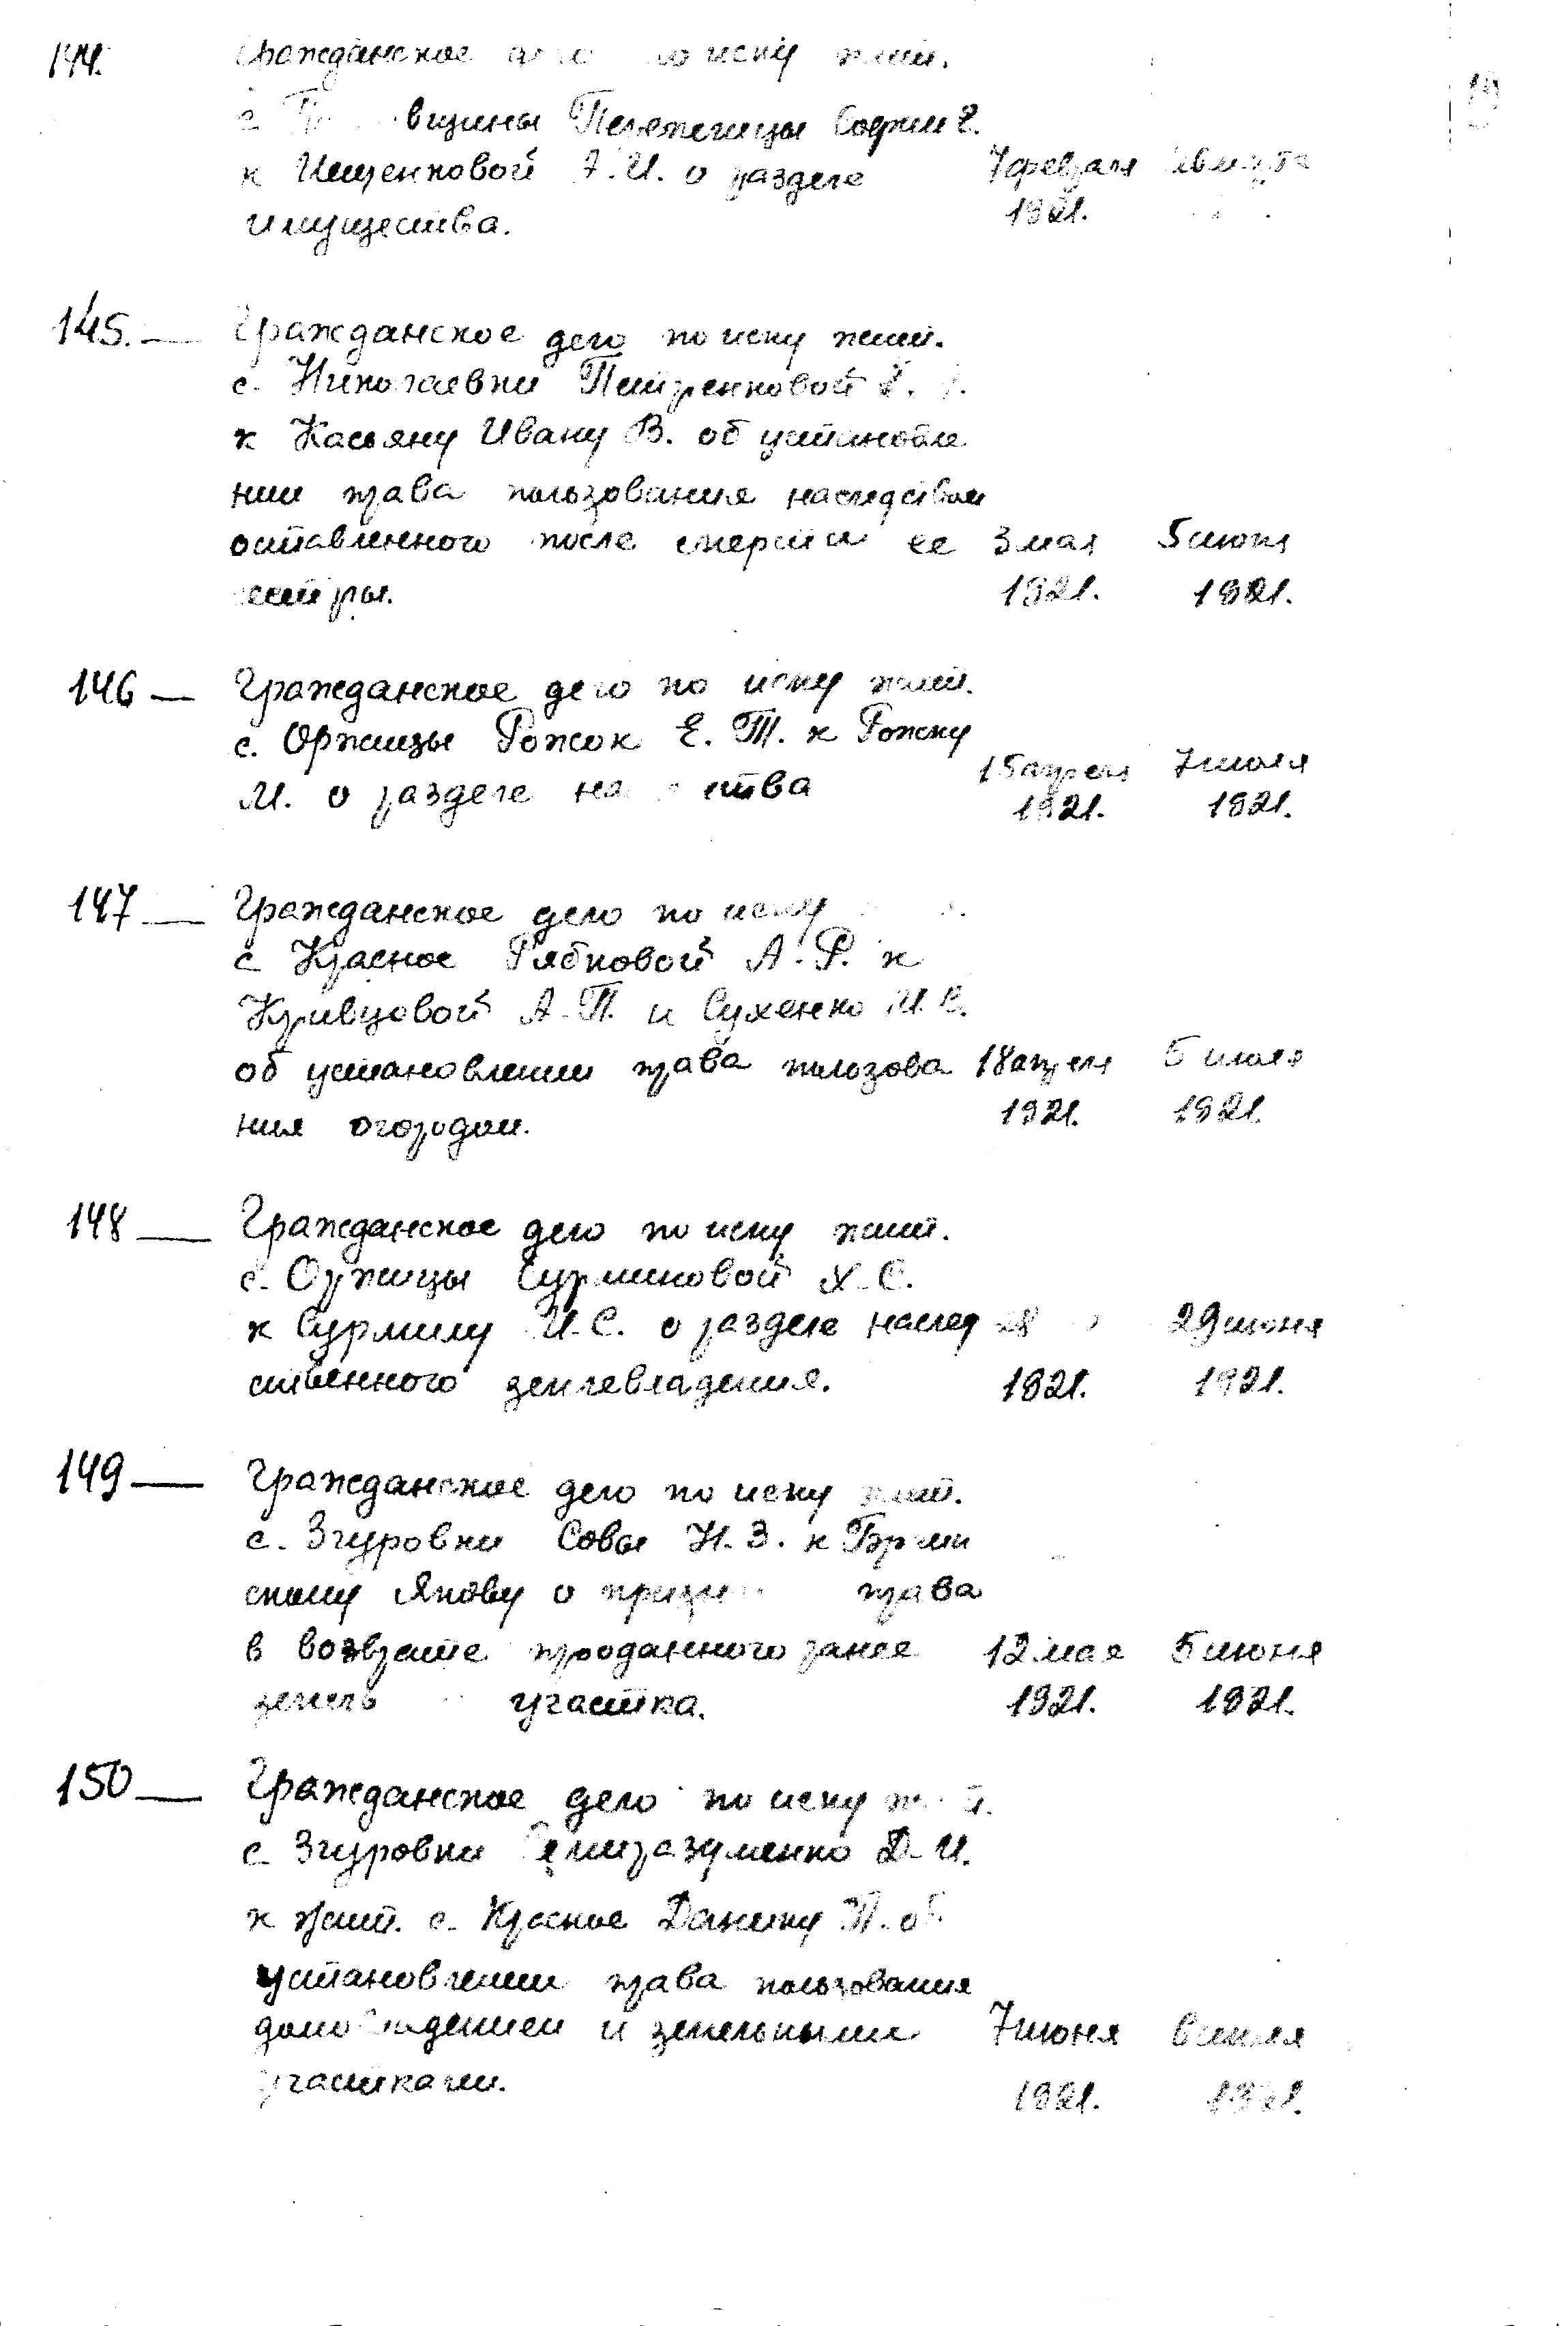 144. Гражданское дело по иску жит.
с. вщины Перепелицы Софии Е.
к Ищенковой А.И. о разделе 7 февраля
имущества. 1921.
145. — Гражданское дело по иску жит.
с. Николаевки Петренковой
к Касьяну Ивану В. об установле
нии права пользования наследством
оставленного после смерти ее 3 мая 5 июня
сестры. 1921. 1921.
146 — Гражданское дело по иску жит.
с. Оржицы Рожок Е. Т. к Рожку
М. о разделе на ства 15 апреля 7 июля
1921. 1921.
147 — Гражданское дело по иску
с Красное Рябковой А.Р. к
Кривцовой А.П. и Сухенко И.С.
об установлении права пользова 18 апреля 5 июля
ния огородом. 1921. 1921.
148 — Гражданское дело по иску жит.
с. Оржицы Сурмиловой Х.С.
к Сурмилу И.С. о разделе наслед 28 29 июня
ственного землевладения. 1921. 1921.
149 — Гражданское дело по иску жит.
с. Згуровки Совы Н.З. к
скому Якову о призн права
в возврате проданного ранее 12 мая 5 июня
земель участка. 1921. 1921.
150 — Гражданское дело по иску жит.
с Згуровки Семиразуменко Д.И.
к жит. с. Красное Данику П. об
установлении права пользования
домовладением и земельными 7 июня 8 июля
участками. 1921. 1921.